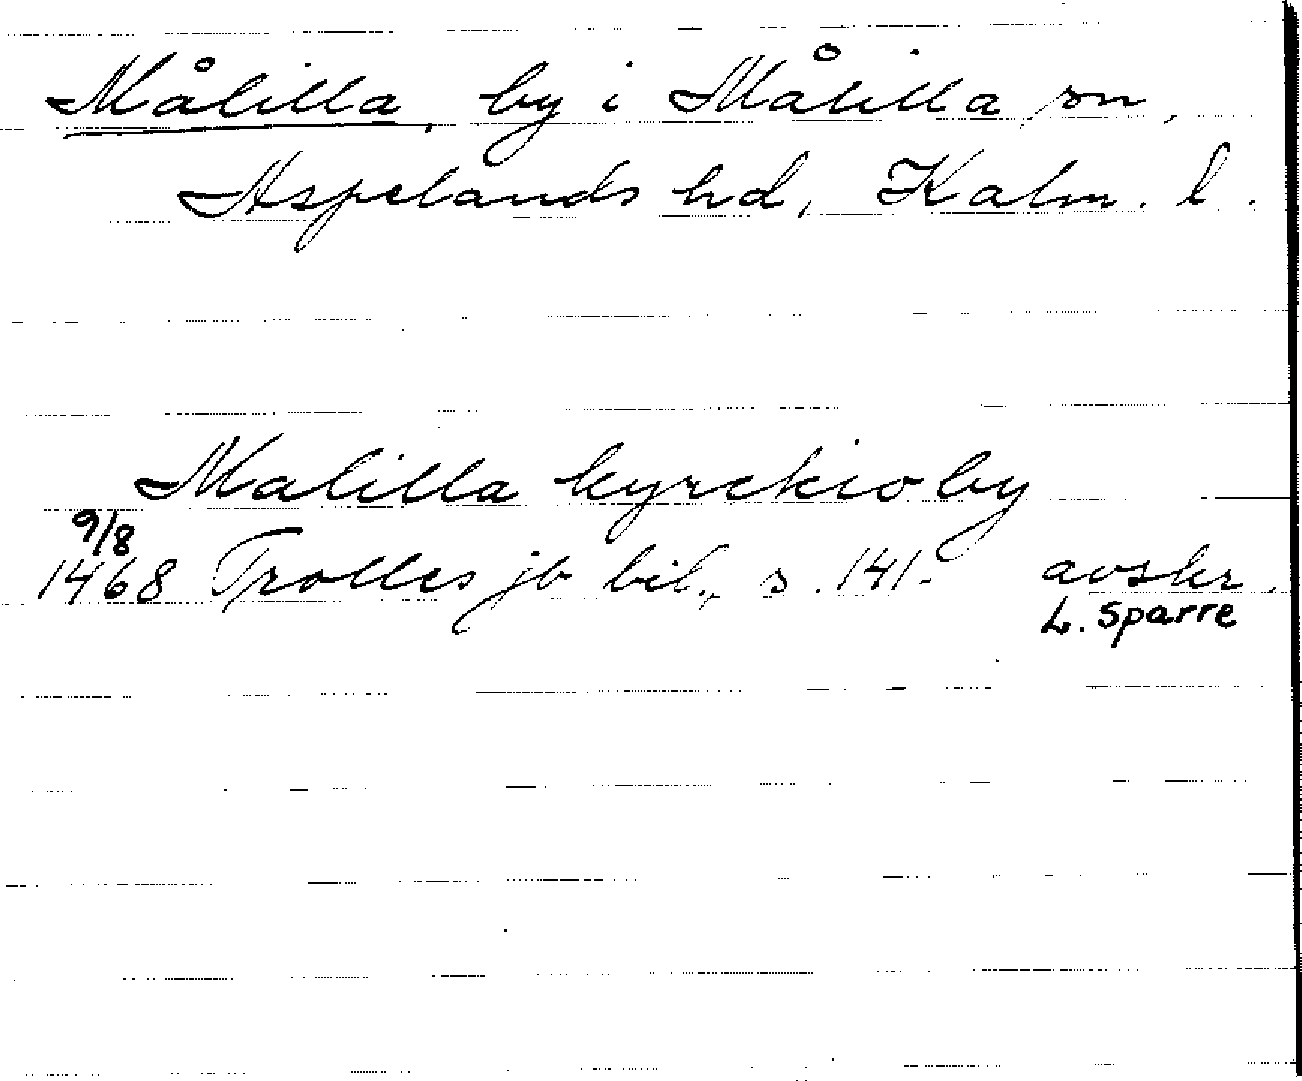 Målilla, by i Målilla sn,
Aspelands hd, Kalm. l.
Malilla kyrckioby
9/8
1468 Trolles jb bil., s. 141. avskr.
L. Sparre